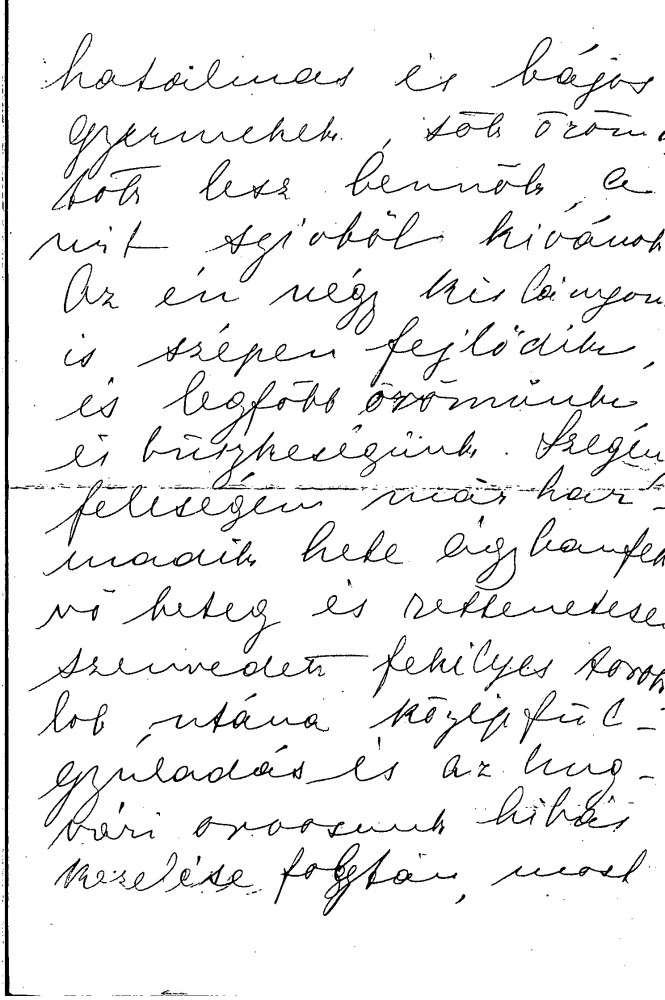 hatalmas és bájos
gyermekek, sők öröm
tök lesz bennök, a
mit szivből kivánok
Az én négy kis lányom
is szépen fejlődik,
és legfőbb örömünk
és büszkeségünk. Szegén
feleségem már har-
madik hete ágybanfek
vő beteg és rettenetesen
szenvedett fekélyes torok
lob, utána középfül-
gyúladás és az
vári orvosunk hibás
kezelése folytán, most